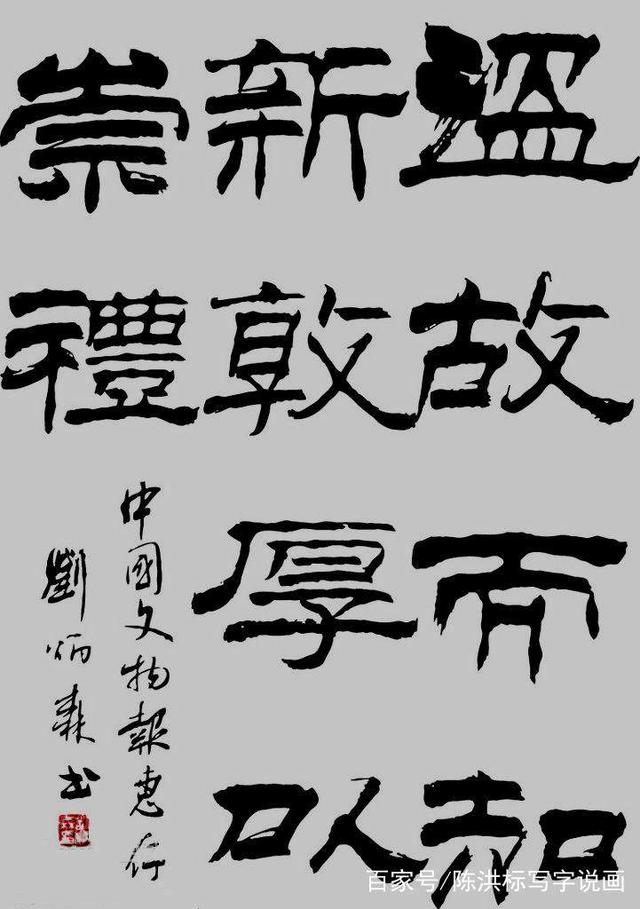 溫故而知
新敦厚以
崇禮
中國文物報惠存
劉炳森书
百家号/陈洪标写字说画